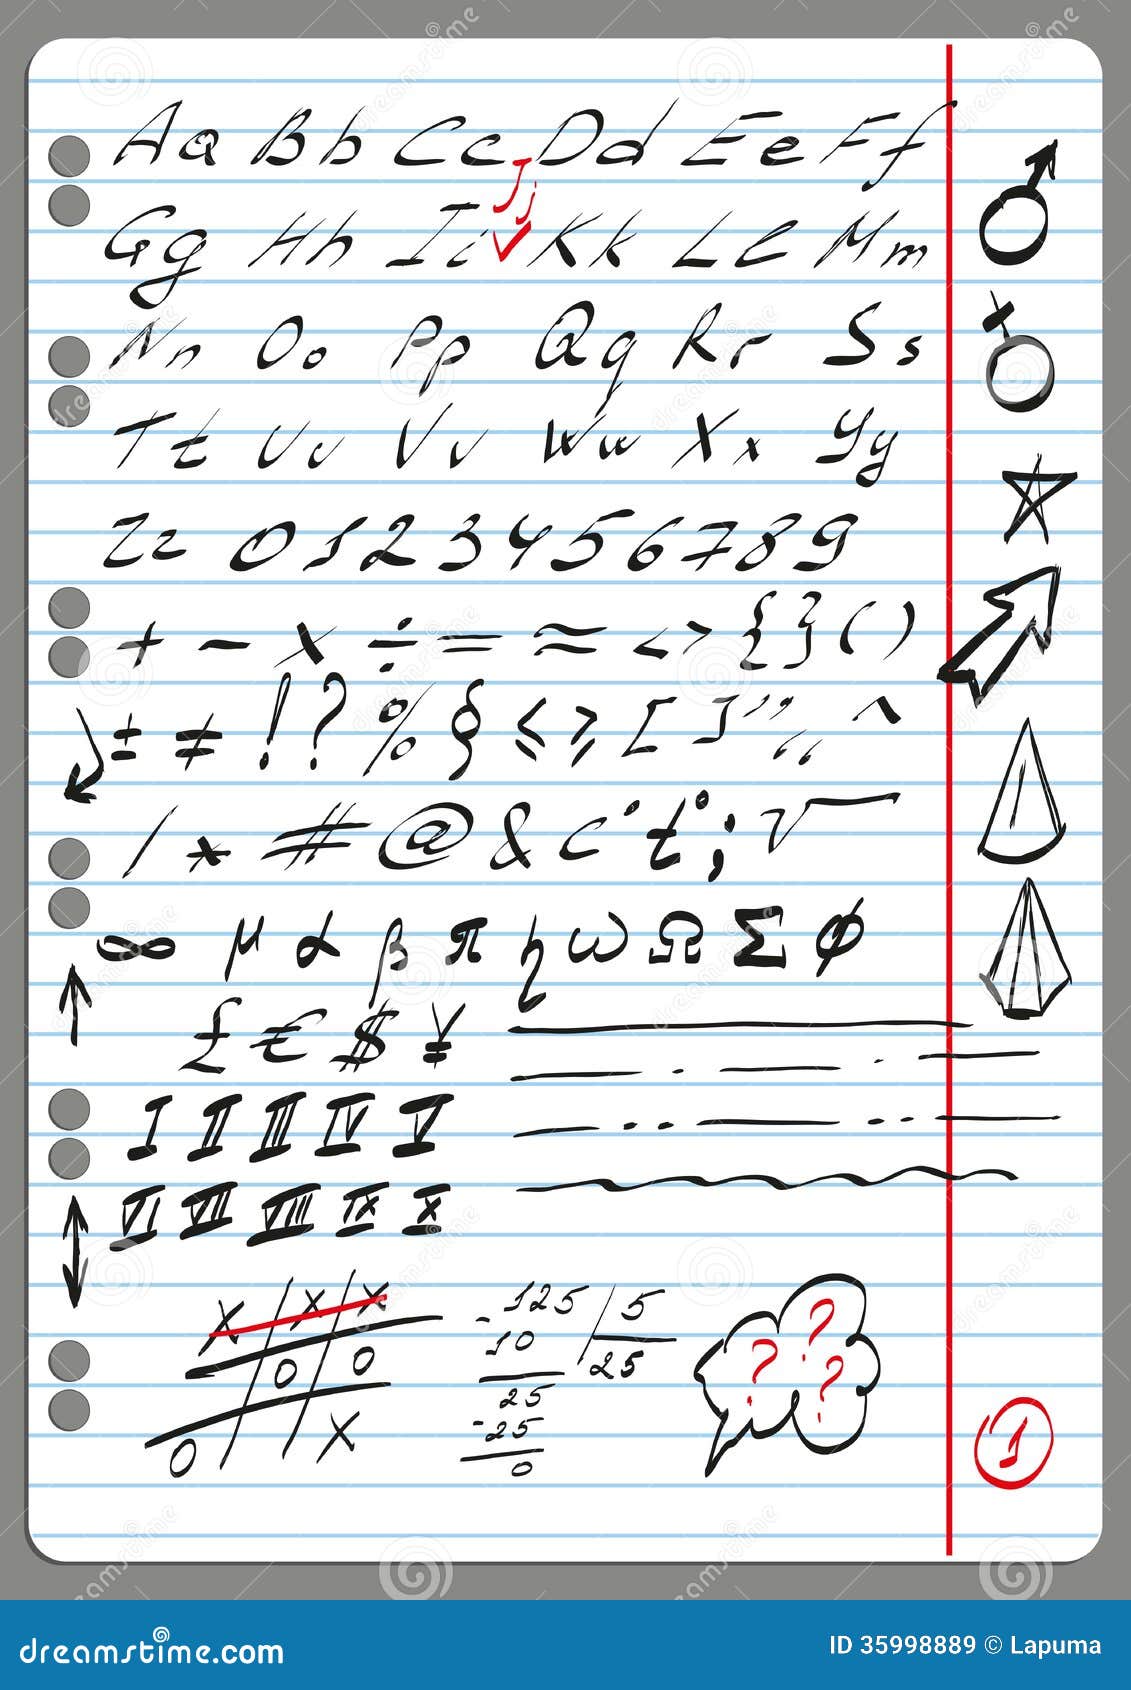 Aa Bb Cc Dd Ee Ff
Jj
Gg Hh Ii Kk Ll Mm
Nn Oo Pp Qq Rr Ss
Tt Uu Vv Ww Xx Yy
Zz 0 1 2 3 4 5 6 7 8 9
+ - × ÷ = ≈ < > { } ( )
± ≠ ! ? % § ≤ ≥ [ ] ” „ ^
/ * # @ & c° t° ; √
∞ μ α β π η ω Ω Σ φ
£ € $ ¥
I II III IV V
VI VII VIII IX X
X X X
O O
O X
-125 | 5
10 25
25
-25
0
? ? ? ?
1
dreamstime.com
ID 35998889 © Lapuma